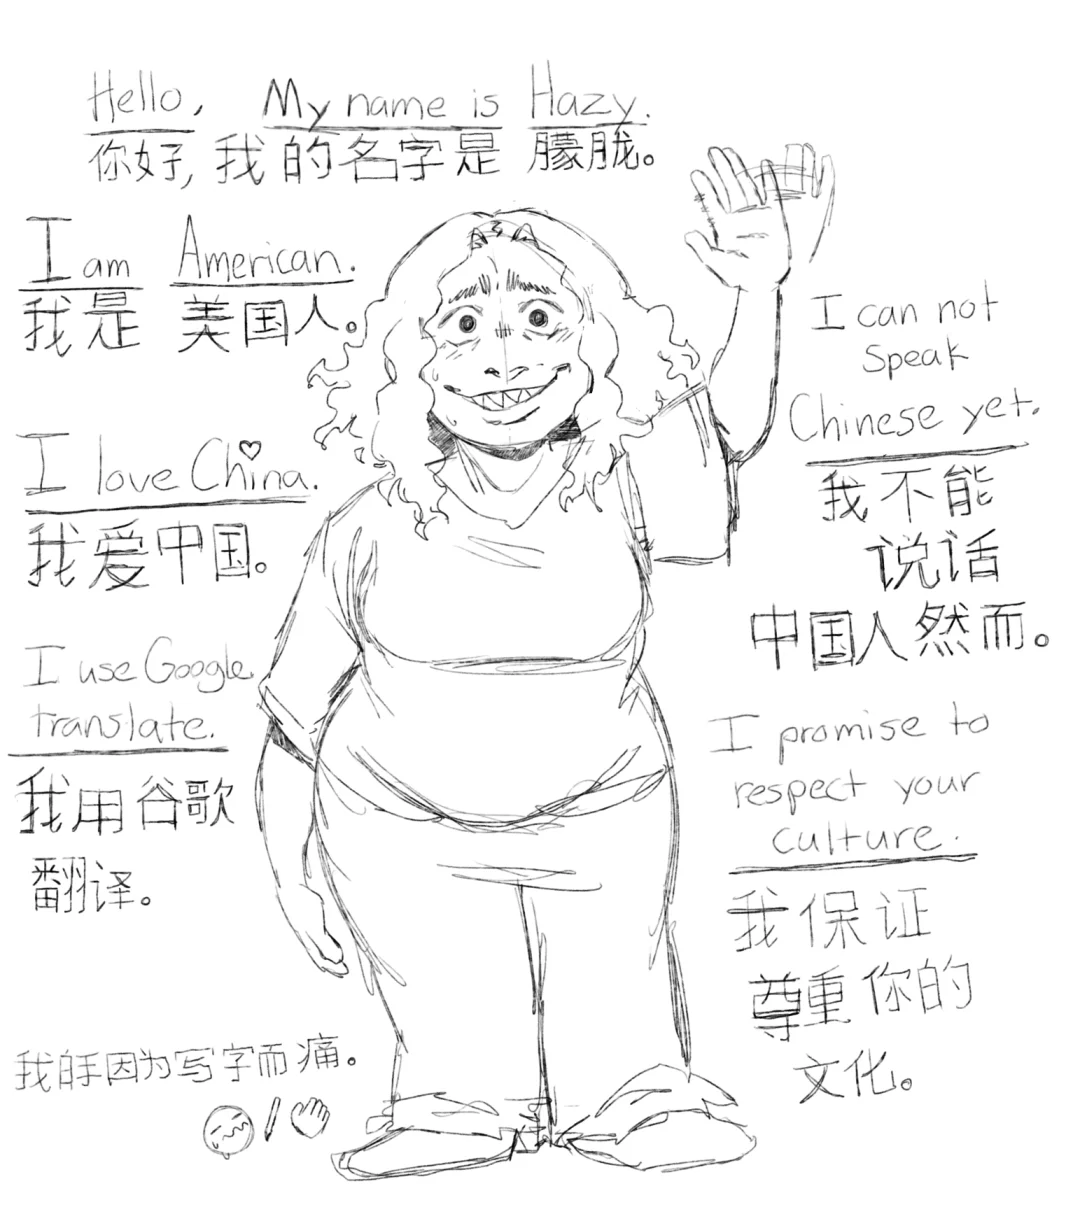 Hello, My name is Hazy.
你好, 我的名字是 朦胧。
I am American.
我是 美国人。
I love China.
我爱中国。
I use Google
translate.
我用谷歌
翻译。
我的手因为写字而痛。
I can not
speak
Chinese yet.
我不能
说话
中国人然而。
I promise to
respect your
culture.
我保证
尊重你的
文化。